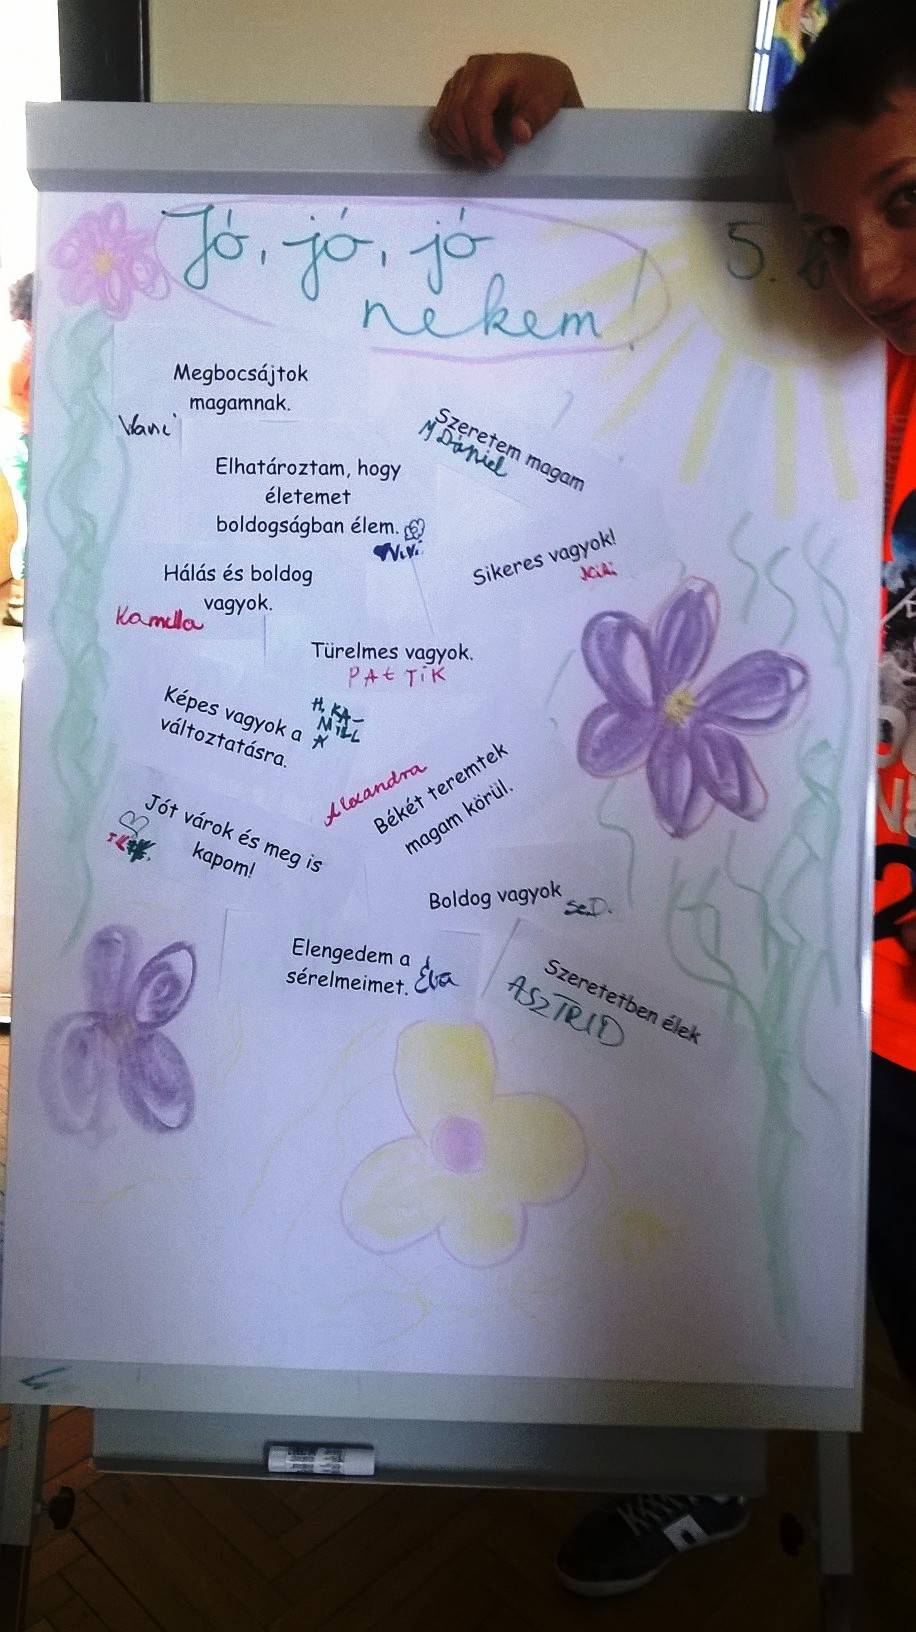 Jó, jó, jó
nekem!
5.
Megbocsájtok
magamnak.
Szeretem magam
M Dániel
Elhatároztam, hogy
életemet
boldogságban élem.
Vivi
Sikeres vagyok!
Hálás és boldog
vagyok.
Kamilla
Türelmes vagyok.
PAtTiK
Képes vagyok a
változtatásra.
H. KA-
MiLL
A
Alexandra
Békét teremtek
magam körül.
Jót várok és meg is
kapom!
Boldog vagyok
Elengedem a
sérelmeimet.
Éva
Szeretetben élek
ASZTRID